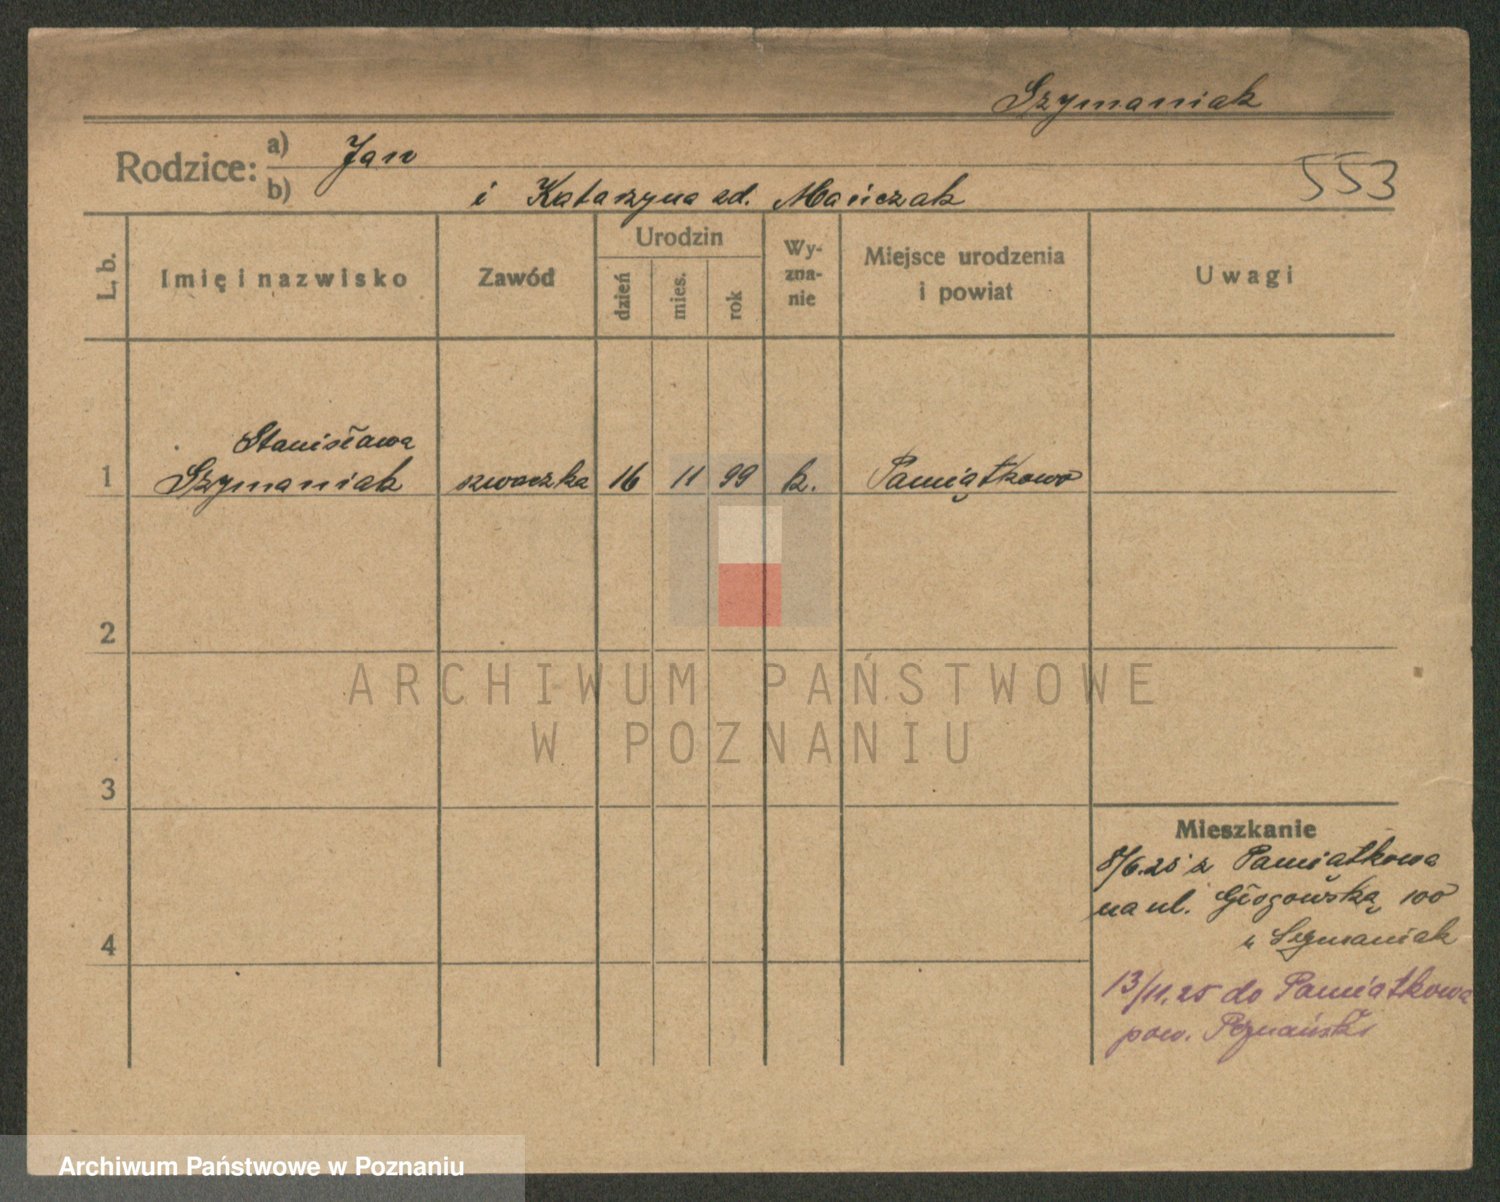 Szymaniak
Rodzice:
a) Jan
b) i Katarzyna zd. Mańczak
553
L. b.
Imię i nazwisko
Zawód
Urodzin
dzień
mies.
rok
Wy-
zna-
nie
Miejsce urodzenia
i powiat
Uwagi
Stanisława
1 Szymaniak szwaczka 16 11 99 k. Pamiątkowo
2
3
4
Mieszkanie
8/6.25 z Pamiątkowa
na ul. Głogowską 100
u Szymaniak
13/11.25 do Pamiątkowa
pow. Poznański
ARCHIWUM PAŃSTWOWE
W POZNANIU
Archiwum Państwowe w Poznaniu